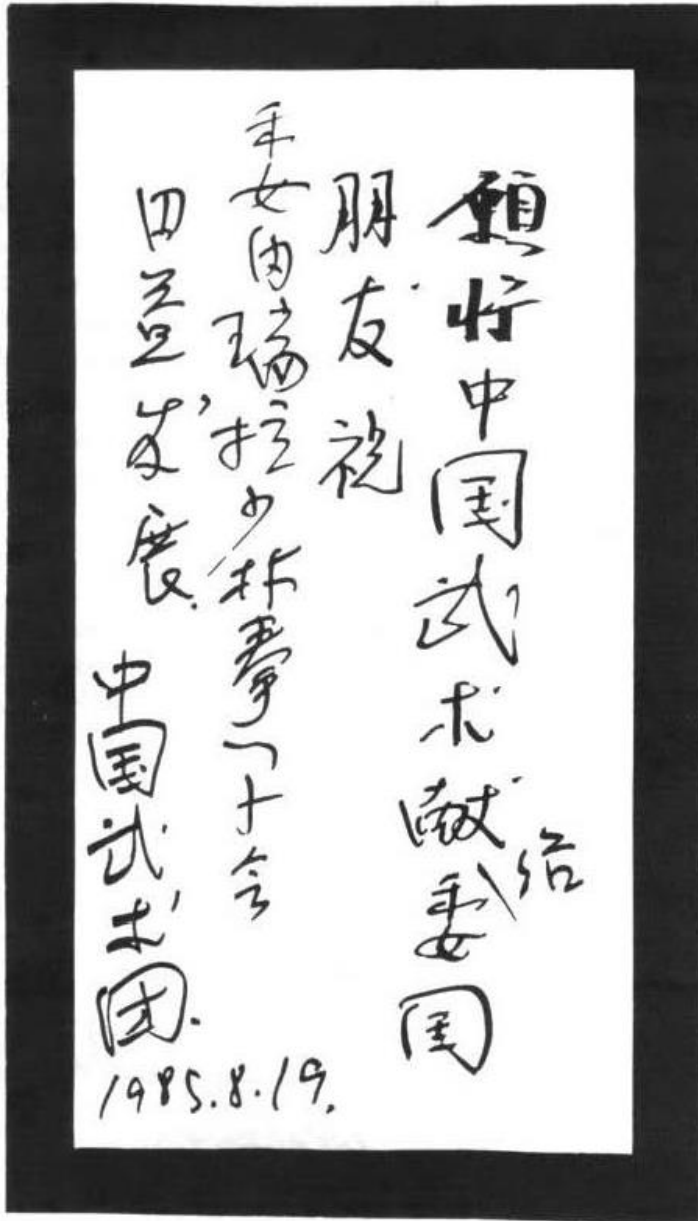 願将中国武术献给委国
朋友祝
委内瑞拉少林拳会
日益发展.
中国武术团.
1985.8.19.